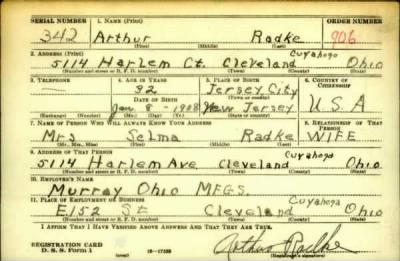 SERIAL NUMBER 1. NAME (Print) ORDER NUMBER
342 Arthur Radke 906
(First) (Middle) (Last)
2. ADDRESS (Print)
Cuyahoga
5114 Harlem Ct. Cleveland Ohio
(Number and street or R. F. D. number) (Town) (County) (State)
3. TELEPHONE 4. AGE IN YEARS 5. PLACE OF BIRTH 6. COUNTRY OF CITIZENSHIP
32 Jersey City
DATE OF BIRTH (Town or county)
Jan 8 - 1908 New Jersey U.S.A
(Exchange) (Number) (Mo.) (Day) (Yr.) (State or country)
7. NAME OF PERSON WHO WILL ALWAYS KNOW YOUR ADDRESS 8. RELATIONSHIP OF THAT PERSON
Mrs Selma Radke WIFE
(Mr., Mrs., Miss) (First) (Middle) (Last)
9. ADDRESS OF THAT PERSON
Cuyahoga
5114 Harlem Ave Cleveland Ohio
(Number and street or R. F. D. number) (Town) (County) (State)
10. EMPLOYER'S NAME
Murray Ohio MFGS.
11. PLACE OF EMPLOYMENT OR BUSINESS
Cuyahoga
E.152 St Cleveland Ohio
(Number and street or R. F. D. number) (Town) (County) (State)
I AFFIRM THAT I HAVE VERIFIED ABOVE ANSWERS AND THAT THEY ARE TRUE.
REGISTRATION CARD
D. S. S. Form 1 16-17105 Arthur Radke
(Registrant's signature)